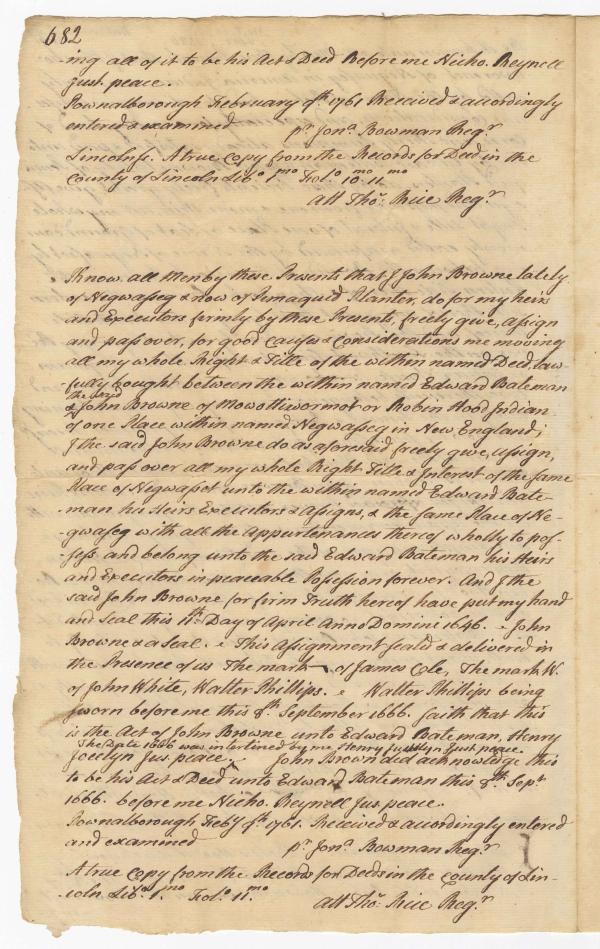 682
-ing all of it to be his Act & Deed Before me Nicho. Reynell
Just. peace.
Pownalborough February 9th 1761 Received & accordingly
entered & examined pr. Jona. Bowman Regr.
Lincolnss. A true Copy from the Records for Deed in the
County of Lincoln Libo. 1mo Folo. 10. 11mo
Att Thos. Rice Regr.
Know all Men by these Presents that I John Browne lately
of Negwasseg & now of Pemaquid Planter, do for my heirs
and Executors firmly by these Presents, freely give, assign
and pass over, for good Causes & Considerations me moving
all my whole Right & Title of the within named Deed, law
-fully bought between the within named Edward Bateman
the said
& John Browne of Mowottiwormet or Robin Hood Indian
of one Place within named Negwasseg in New England;
I the said John Browne do as aforesaid freely give, assign,
and pass over all my whole Right Title & Interest of the same
Place of Negwasset unto the within named Edward Bate-
-man his Heirs Executors & assigns, & the same Place of Ne-
-gwaseg with all the Appurtenances thereof wholly to pos-
-sess and belong unto the said Edward Bateman his Heirs
and Executors in peaceable Posession forever. And I the
said John Browne for firm Truth hereof have put my hand
and Seal this 11th Day of April Anno Domini 1646. John
Browne & a Seal. This Assignment seal'd & delivered in
the Presence of us The mark of James Cole, The mark W.
of John White, Walter Phillips. Walter Phillips being
sworn before me this 8th September 1666. saith that this
is the Act of John Browne unto Edward Bateman, Henry
The Date 1666 was interlined by me Henry Jusslyn Just. peace
Jocelyn Jus. peace. John Brown did acknowledge this
to be his Act & Deed unto Edward Bateman this 8th Sept
1666. before me Nicho. Reynell Jus. peace.
Pownalborough Feby 9th 1761. Received & accordingly entered
and examined pr. Jona. Bowman Regr.
A true Copy from the Records for Deeds in the County of Lin-
-coln Libo. 1mo Folo. 11mo
Att Thos. Rice Regr.